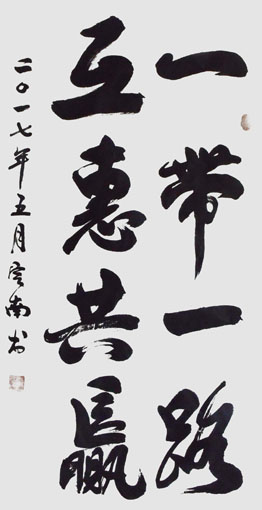 一带一路
互惠共赢
二〇一七年五月雲南书